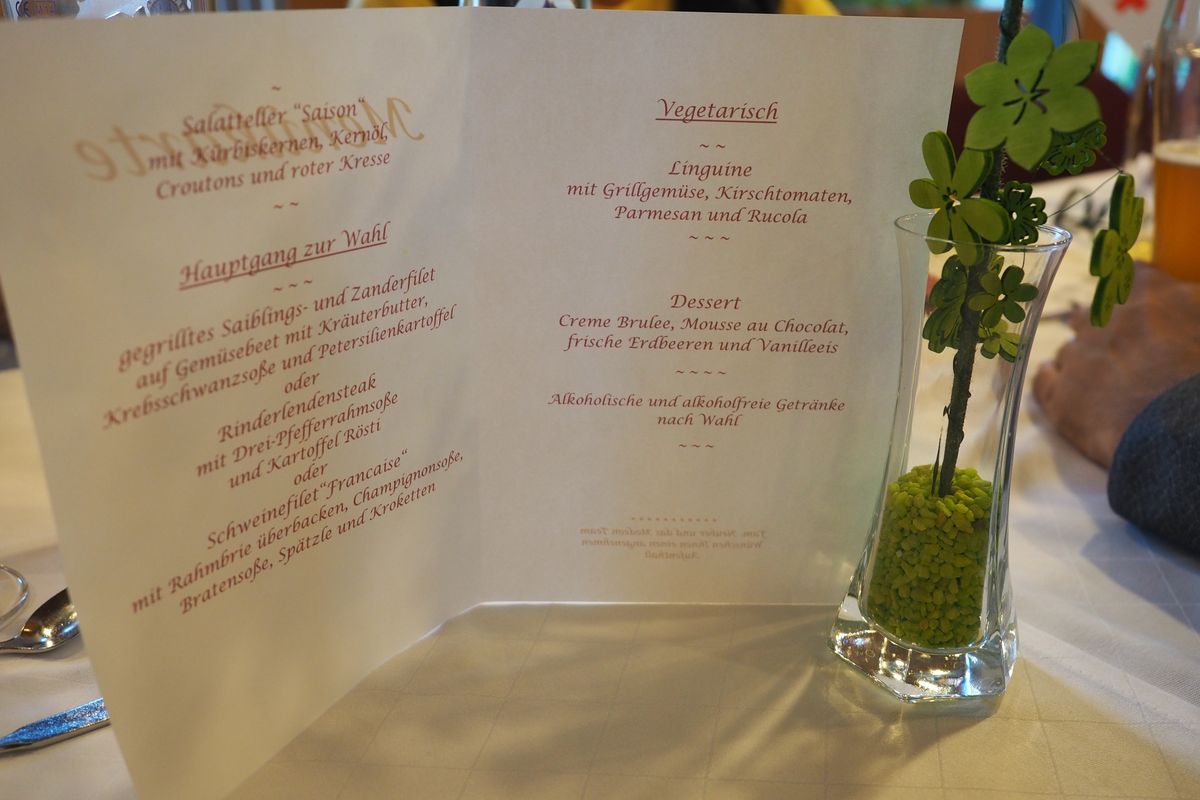 ~
Salatteller "Saison"
mit Kürbiskernen, Kernöl,
Croutons und roter Kresse
~ ~
Hauptgang zur Wahl
~ ~ ~
gegrilltes Saiblings- und Zanderfilet
auf Gemüsebeet mit Kräuterbutter,
Krebsschwanzsoße und Petersilienkartoffel
oder
Rinderlendensteak
mit Drei-Pfefferrahmsoße
und Kartoffel Rösti
oder
Schweinefilet "Francaise"
mit Rahmbrie überbacken, Champignonsoße,
Bratensoße, Spätzle und Kroketten
Vegetarisch
~ ~
Linguine
mit Grillgemüse, Kirschtomaten,
Parmesan und Rucola
~ ~ ~
Dessert
Creme Brulee, Mousse au Chocolat,
frische Erdbeeren und Vanilleeis
~ ~ ~ ~
Alkoholische und alkoholfreie Getränke
nach Wahl
~ ~ ~
Fam. Neuber und das Modeon Team
Wünschen Ihnen einen angenehmen
Aufenthalt